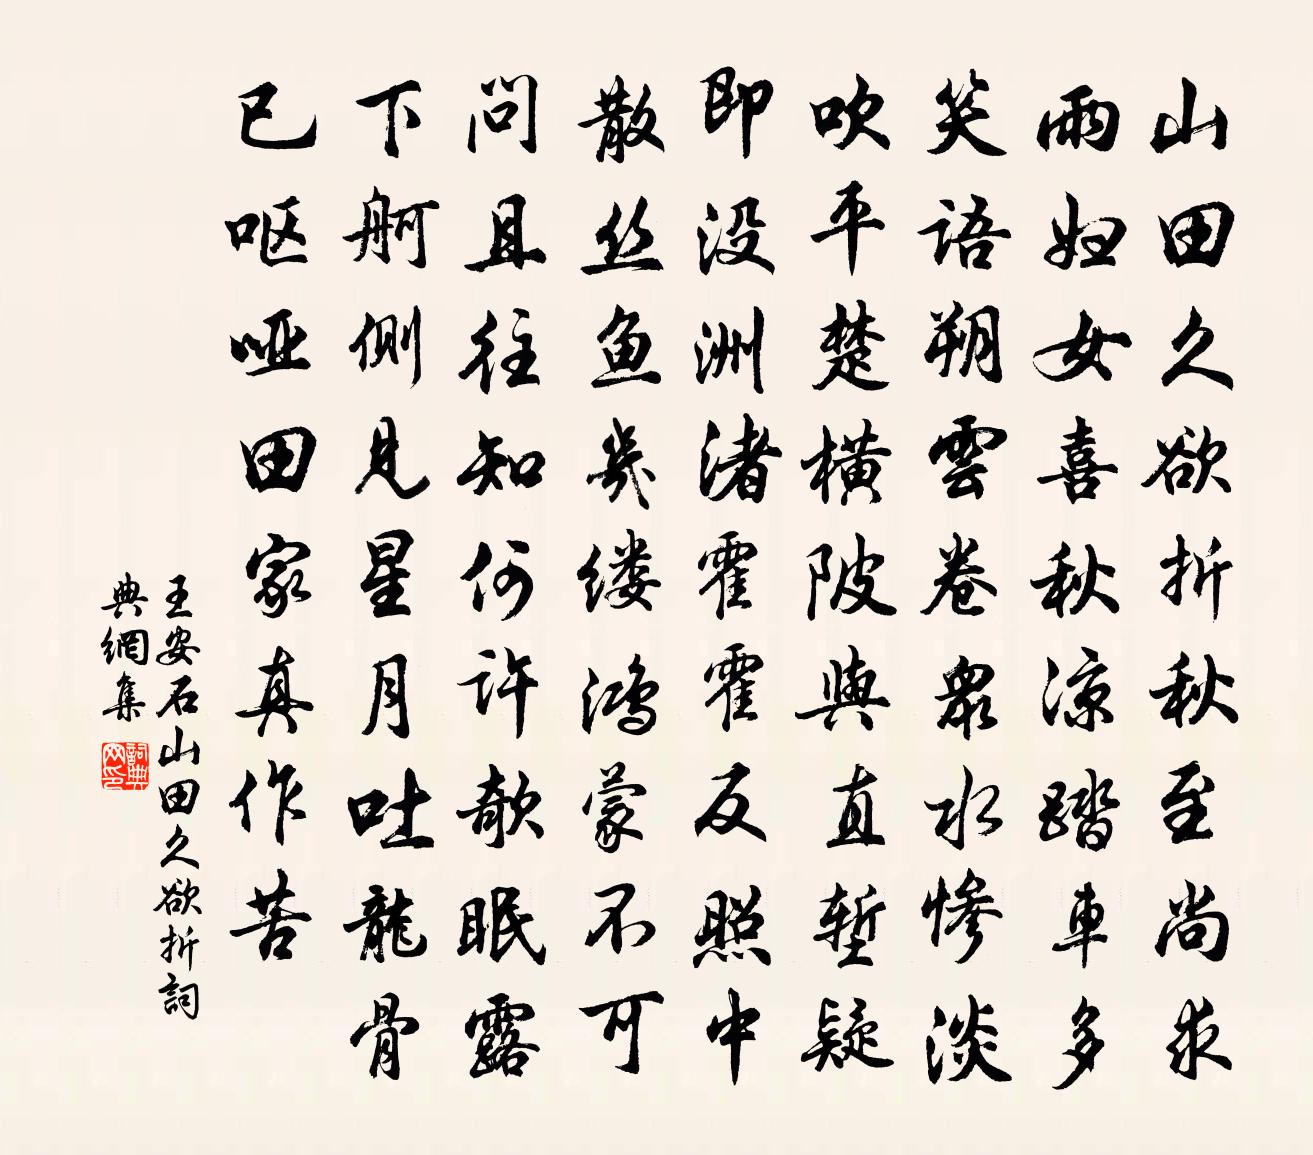 山田久欲折秋至尚求
雨妇女喜秋凉踏車多
笑語朔雲卷衆水惨淡
吹平楚横陂與直塹疑
即没洲渚霍霍反照中
散丝鱼幾缕鸿蒙不可
問且往知何许欹眠露
下舸侧見星月吐龍骨
已呕哑田家真作苦
王安石山田久欲折詞
典網集
詞典网印